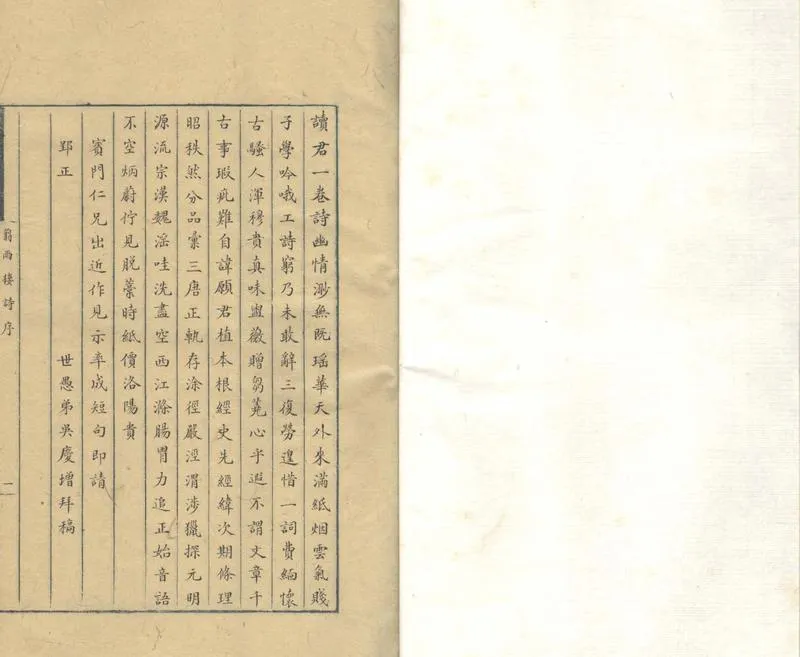 讀君一卷詩幽情渺無既瑶華天外來滿紙烟雲氣賤
子學吟哦工詩窮乃未敢辭三復勞遑惜一詞費緬懷
古騷人渾穆貴真味盥薇贈芻蕘心乎遐不謂文章千
古事瑕疵難自諱願君植本根經史先經緯次期條理
昭秩然分品彙三唐正軌存涂徑嚴涇渭涉獵探元明
源流宗漢魏滛哇洗盡空西江滌腸胃力追正始音語
不空炳蔚佇見脫藁時紙價洛陽貴
賓門仁兄出近作見示率成短句即請
郢正
世愚弟吳慶增拜稿
翦雨樓詩序
二